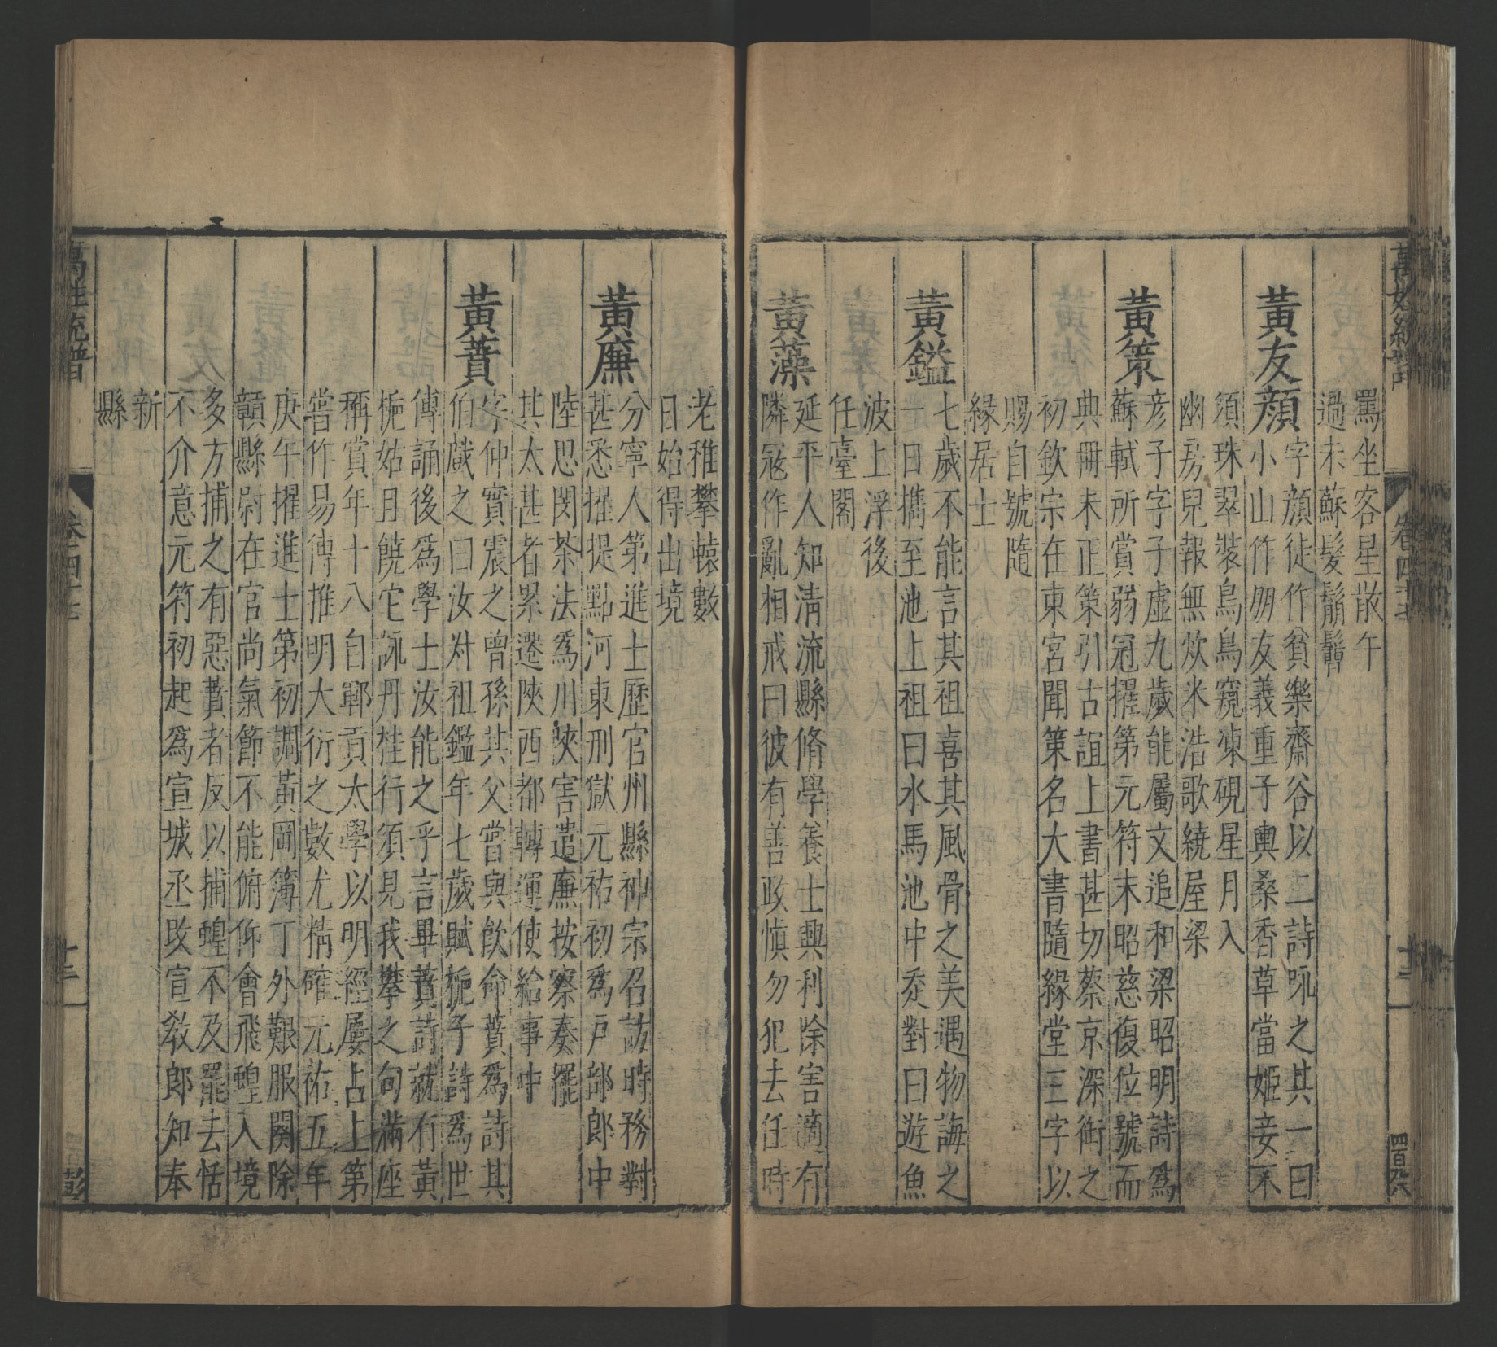 萬姓統譜
卷四十七
十二
罵坐客星散午
過未蘇髮鬅鬙
黃友顏
字顏徒作貧樂齋谷以二詩咏之其一曰
小山作朋友義重子輿桑香草當姬妾不
須珠翠裝鳥烏窺凍硯星月入
幽房兒報無炊米浩歌繞屋梁
黃策
彦子字子虛九歲能屬文追和梁昭明詩爲
蘇軾所賞弱冠擢第元符末昭慈復位號而
典冊未正策引古誼上書甚切蔡京深銜之
初欽宗在東宮聞策名大書隨緣堂三字以
賜自號隨
緣居士
黃鑑
七歲不能言其祖喜其風骨之美遇物誨之
一日擕至池上祖曰水馬池中走對曰遊魚
波上浮後
任臺閣
黃藻
延平人知清流縣脩學養士興利除害滴有
隣冦作亂相戒曰彼有善政慎勿犯去任時
老稚攀轅數
日始得出境
黃廉
分寧人第進士歷官州縣神宗召訪時務對
甚悉擢提點河東刑獄元祐初爲戸部郎中
陸思閔茶法爲川陝害遣廉按察奏擺
其太甚者累遷陝西都轉運使給事中
黃蕡
字仲實震之曾孫其父嘗與飮命蕡爲詩其
伯戲之曰汝对祖鑑年七歲賦梔子詩爲世
傳誦後爲學士汝能之乎言畢蕡詩就有黃
梔姑且饒它詠丹桂行須見我攀之句滿座
稱賞年十八自鄆貢太學以明經屢占上第
嘗作易傳推明大衍之數尤精確元祐五年
庚午擢進士第初調黃岡簿丁外艱服闋除
贛縣尉在官尚氣節不能俯仰會飛蝗入境
多方捕之有惡蕡者反以捕蝗不及罷去恬
不介意元符初起爲宣城丞改宣敎郎知奉
新
縣
萬姓統譜
卷之四十七
十三